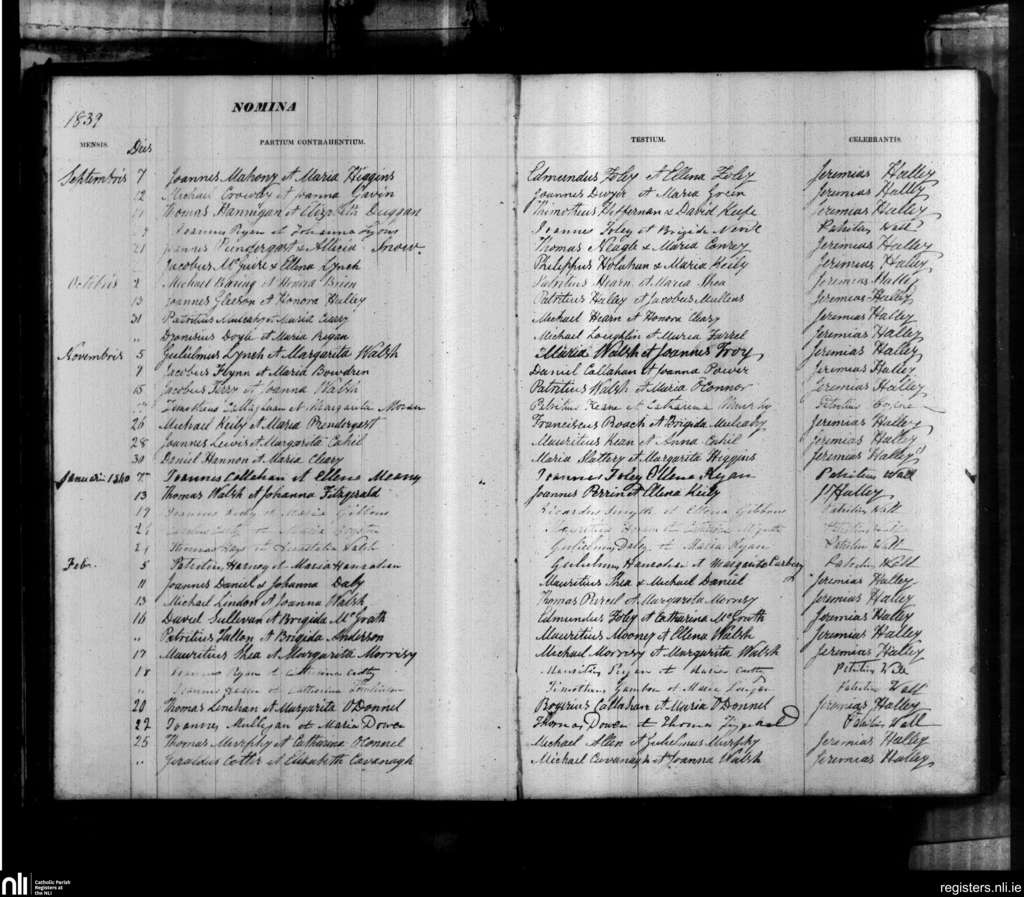 1839
NOMINA
MENSIS. Dies PARTIUM CONTRAHENTIUM. TESTIUM. CELEBRANTIS.
Septembris 7 Joannes Mahony et Maria Higgins Edmundus Foley et Ellena Foley Jeremias Halley
12 Michael Crowley et Joanna Gavin Joannes Dwyer et Maria Jeremias Halley
Thomas Hannigan et Elizabeth Duggan Thimotheus Heffernan & David Keefe Jeremias Halley
Joannes Ryan et Johanna Lyons Joannes Foley et Brigida Patritius Wall
21 Joannes Prendergast & Allicia Thomas Neagle & Maria Jeremias Halley
Jacobus McGuire & Ellena Lynch Philippus Holahan & Maria Keily Jeremias Halley
Octobris 2 Michael et Honora Brien Patritius Hearn et Maria Shea Jeremias Halley
13 Joannes Gleeson et Honora Halley Patritius Halley et Jacobus Mullens Jeremias Halley
31 Patritius et Maria Cleary Michael Hearn et Honora Cleary Jeremias Halley
" Dyonisius Doyle et Maria Regan Michael Loughlin et Maria Farrel Jeremias Halley
Novembris 5 Gulielmus Lynch et Margarita Walsh Maria Walsh et Joannes Troy Jeremias Halley
7 Jacobus Flynn et Maria Bowdren Daniel Callahan et Joanna Power Jeremias Halley
15 Jacobus Terry et Joanna Walsh Patritius Walsh et Maria O'Connor Jeremias Halley
Callaghan et Margarita Moran Patritius Keane et Catharena Murphy Patritius
26 Michael Keily et Maria Prendergast Franciscus Roach et Brigida Mulcahy Jeremias Halley
28 Joannes Lewis et Margarita Cahil Mauritius Kean et Anna Cahil Jeremias Halley
30 Daniel Hannon et Maria Cleary Maria Slattery et Margarita Higgins Jeremias Halley
Januarii 1840 7 Joannes Callahan et Ellena Meany Joannes Foley Ellena Ryan Patritius Wall
13 Thomas Walsh et Johanna Fitzgerald Joannes Perrin et Elena Keily J Halley
19 Joannes et Maria Gibbons Ricardus Smyth et Ellena Gibbons Patritius Wall
et Maria Mauritius et Patritius Wall
Thomas Hays et Anastatia Walsh Gulielmus Daley et Maria Ryan Patritius Wall
Feb. 5 Patritius et Maria Hanrahan Gulielmus Hanrahan et Margarita Patritius Wall
11 Joannes Daniel & Johanna Daly Mauritius Shea & Michael Daniel Jeremias Halley
13 Michael Lindon et Joanna Walsh Thomas et Margarita Morrisy Jeremias Halley
16 David Sullivan et Brigida McGrath Edmundus Foley et Catharina McGrath Jeremias Halley
" Patritius Fallon et Brigida Anderson Mauritius Mooney et Ellena Walsh Jeremias Halley
17 Mauritius Shea et Margarita Morrisy Michael Morrisy et Margarita Walsh Jeremias Halley
18 Ryan et Catharina Mauritius Ryan et Maria Patritius Wall
" Joannes et Catharina Tomlinson Timotheus et Maria Patritius Wall
20 Thomas Linehan et Margarita O'Donnel Rogerius Callahan et Maria O'Donnel Jeremias Halley
22 Joannes Mulligan et Maria Dower Thomas Dower et Thomas Fitzgerald Patritius Wall
25 Thomas Murphy et Catharina O'Connel Michael Allen et Julielmus Murphy Jeremias Halley
" Geraldus Cotter et Elisabeth Cavanagh Michael Cavanagh et Joanna Walsh Jeremias Halley
nli Catholic Parish Registers at the NLI
registers.nli.ie